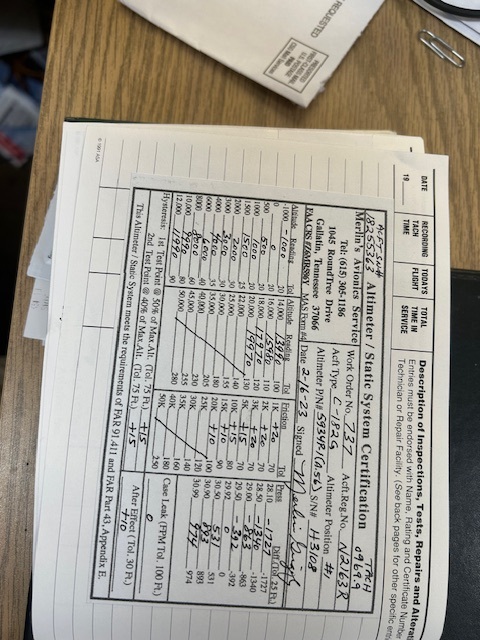 REQUESTED
PRESORTED
FIRST-CLASS MAIL
U.S. POSTAGE
PAID
DATE
19
RECORDING TACH TIME
TODAYS FLIGHT
TOTAL TIME IN SERVICE
Description of Inspections, Tests, Repairs and Alterat
Entries must be endorsed with Name, Rating and Certificate Number
Technician or Repair Facility. (See back pages for other specific entr
ACFT. S/N#
18255363
TACH
0969.9
Altimeter / Static System Certification
Merlin's Avionics Service
Work Order No. 737
Acft.Reg.No. N2163R
Tel: (615) 306-1186
Acft Type C-182G
Altimeter Position #1
1045 RoundTree Drive
Altimeter P/N# 5934P(A.56)
S/N# H3108
Gallatin, Tennessee 37066
MAS Form #4
Date 2-16-23
Signed
Altitude Reading Tol
Altitude Reading Tol
Friction Tol
Press Diff (Tol 25 Ft.)
-1000 -1000 20
14,000 13990 100
1K +20 70
28.10 -1727 -1727
0 0 20
16,000 15980 110
2K +20 70
28.50 -1340 -1340
500 500 20
18,000 17970 120
3K +20 70
29.00 -863 -863
1000 1000 20
20,000 19970 130
5K +15 70
29.50 -392 -392
1500 1500 25
22,000 140
10K +15 80
29.92 0 0
2000 2000 30
25,000 155
15K +10 90
30.50 531 531
3000 3000 30
30,000 180
20K +10 100
30.90 893 893
4000 4000 35
35,000 205
25K 120
30.99 974 974
6000 6000 40
40,000 230
30K 140
8000 8000 60
45,000 255
35K 160
Case Leak (FPM Tol. 100 Ft.)
10,000 9990 80
50,000 280
40K 180
0
12,000 11990 90
50K 250
Hysterisis: 1st Test Point @ 50% of Max.Alt. (Tol. 75 Ft.) +15
After Effect (Tol. 30 Ft.)
2nd Test Point @ 40% of Max.Alt. (Tol. 75 Ft.) +15
+10
This Altimeter / Static System meets the requirements of FAR 91.411 and FAR Part 43, Appendix E.
ASA